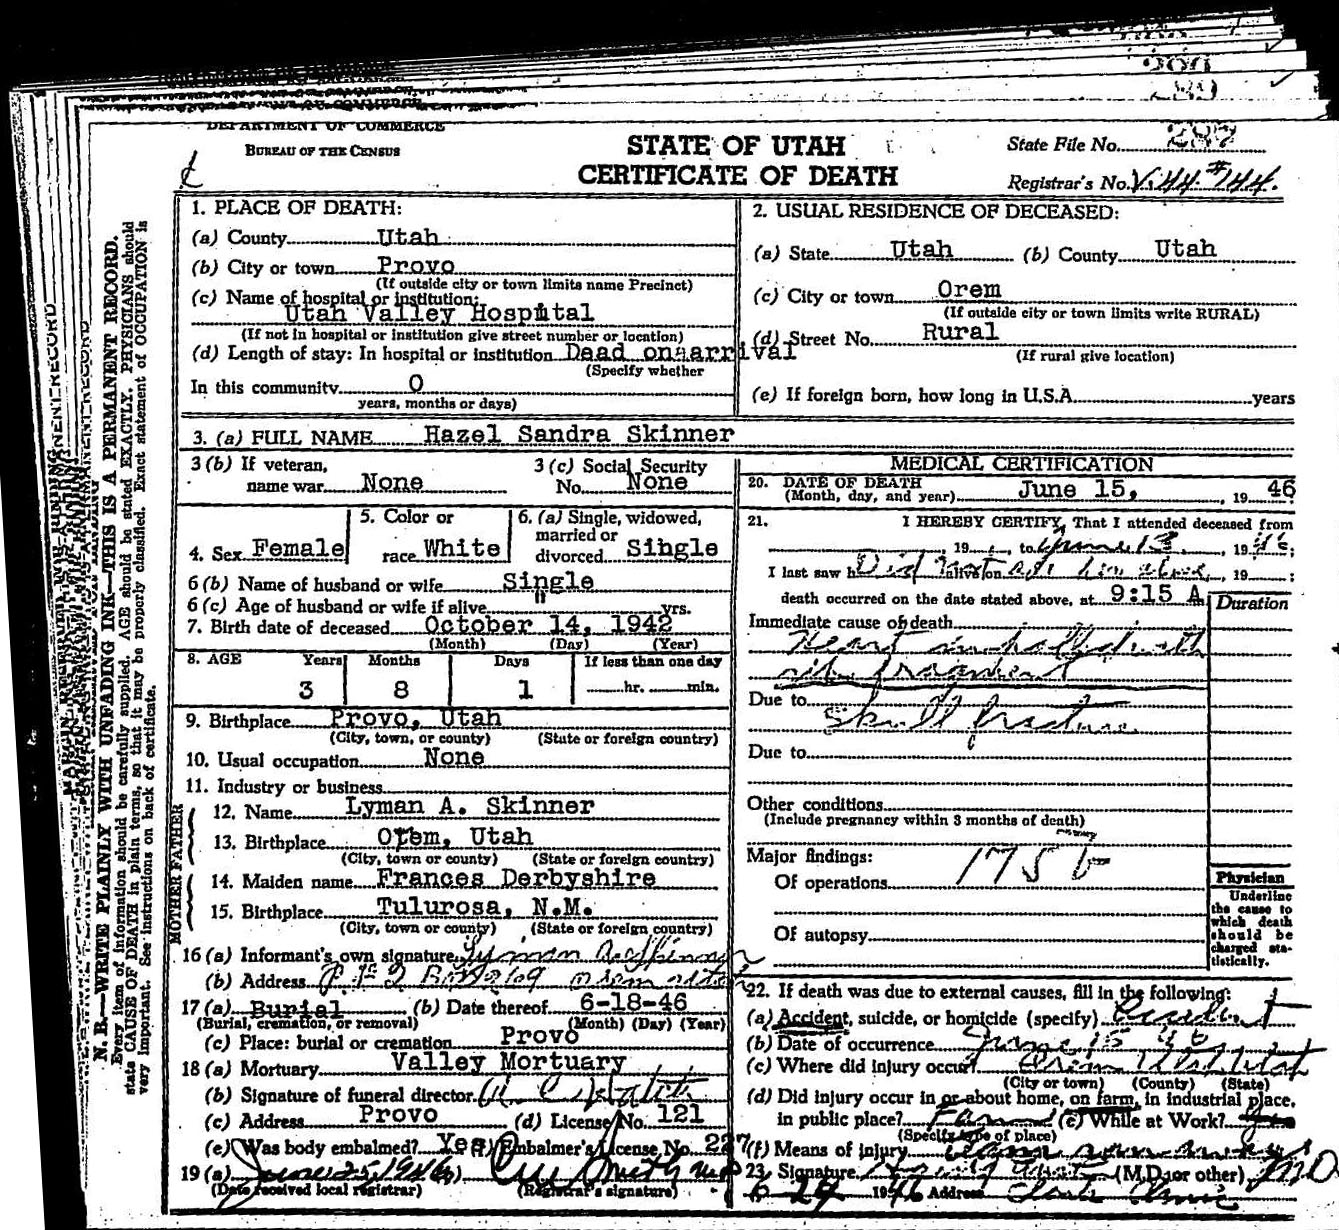 DEPARTMENT OF COMMERCE
BUREAU OF THE CENSUS
STATE OF UTAH
CERTIFICATE OF DEATH
State File No. 287
Registrar's No. V.44 #144.
N. B.—WRITE PLAINLY WITH UNFADING INK—THIS IS A PERMANENT RECORD.
Every item of information should be carefully supplied. AGE should be stated EXACTLY. PHYSICIANS should
state CAUSE OF DEATH in plain terms, so that it may be properly classified. Exact statement of OCCUPATION is
very important. See instructions on back of certificate.
1. PLACE OF DEATH:
(a) County Utah
(b) City or town Provo
(If outside city or town limits name Precinct)
(c) Name of hospital or institution:
Utah Valley Hospital
(If not in hospital or institution give street number or location)
(d) Length of stay: In hospital or institution Dead onaarrival
(Specify whether
In this community 0
years, months or days)
2. USUAL RESIDENCE OF DECEASED:
(a) State Utah (b) County Utah
(c) City or town Orem
(If outside city or town limits write RURAL)
(d) Street No. Rural
(If rural give location)
(e) If foreign born, how long in U.S.A. years
3. (a) FULL NAME Hazel Sandra Skinner
3 (b) If veteran,
name war None
3 (c) Social Security
No. None
4. Sex Female
5. Color or
race White
6. (a) Single, widowed,
married or
divorced Sihgle
6 (b) Name of husband or wife Single
6 (c) Age of husband or wife if alive " yrs.
7. Birth date of deceased October 14, 1942
(Month) (Day) (Year)
8. AGE Years Months Days If less than one day
3 8 1 hr. min.
9. Birthplace Provo, Utah
(City, town, or county) (State or foreign country)
10. Usual occupation None
11. Industry or business
MOTHER FATHER
12. Name Lyman A. Skinner
13. Birthplace Orem, Utah
(City, town or county) (State or foreign country)
14. Maiden name Frances Derbyshire
15. Birthplace Tulurosa, N.M.
(City, town or county) (State or foreign country)
16 (a) Informant's own signature Lyman A Skinner
(b) Address Orem Utah
17 (a) Burial (b) Date thereof 6-18-46
(Burial, cremation, or removal) (Month) (Day) (Year)
(c) Place: burial or cremation Provo
18 (a) Mortuary Valley Mortuary
(b) Signature of funeral director
(c) Address Provo (d) License No. 121
(e) Was body embalmed? Yes (f) Embalmer's License No. 227
19 (a) June 25, 1946 (b)
(Date received local registrar) (Registrar's signature)
MEDICAL CERTIFICATION
20. DATE OF DEATH
(Month, day, and year) June 15, , 19 46
21. I HEREBY CERTIFY, That I attended deceased from
, 19 , to June 15 , 19 46;
I last saw h Did not see him alive alive on , 19 ;
death occurred on the date stated above, at 9:15 A
Duration
Immediate cause of death
Heart in
rib fragment
Due to
Skull fracture
Due to
Other conditions
(Include pregnancy within 3 months of death)
Major findings: 175 b
Of operations
Of autopsy
Physician
Underline
the cause to
which death
should be
charged sta-
tistically.
22. If death was due to external causes, fill in the following:
(a) Accident, suicide, or homicide (specify) Accident
(b) Date of occurrence June 15 46
(c) Where did injury occur? Orem Utah Utah
(City or town) (County) (State)
(d) Did injury occur in or about home, on farm, in industrial place,
in public place? Farm (e) While at Work?
(Specify type of place)
(f) Means of injury
23. Signature (M.D. or other) MD
6-24 1946 Address